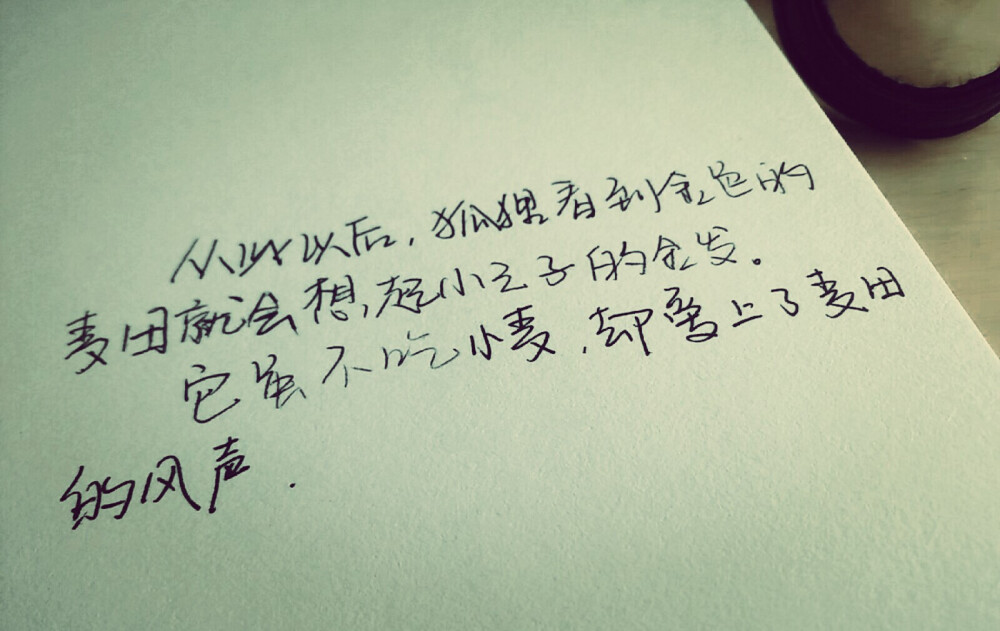 从此以后，狐狸看到金色的
麦田就会想起小王子的金发。
它虽不吃小麦，却爱上了麦田
的风声.